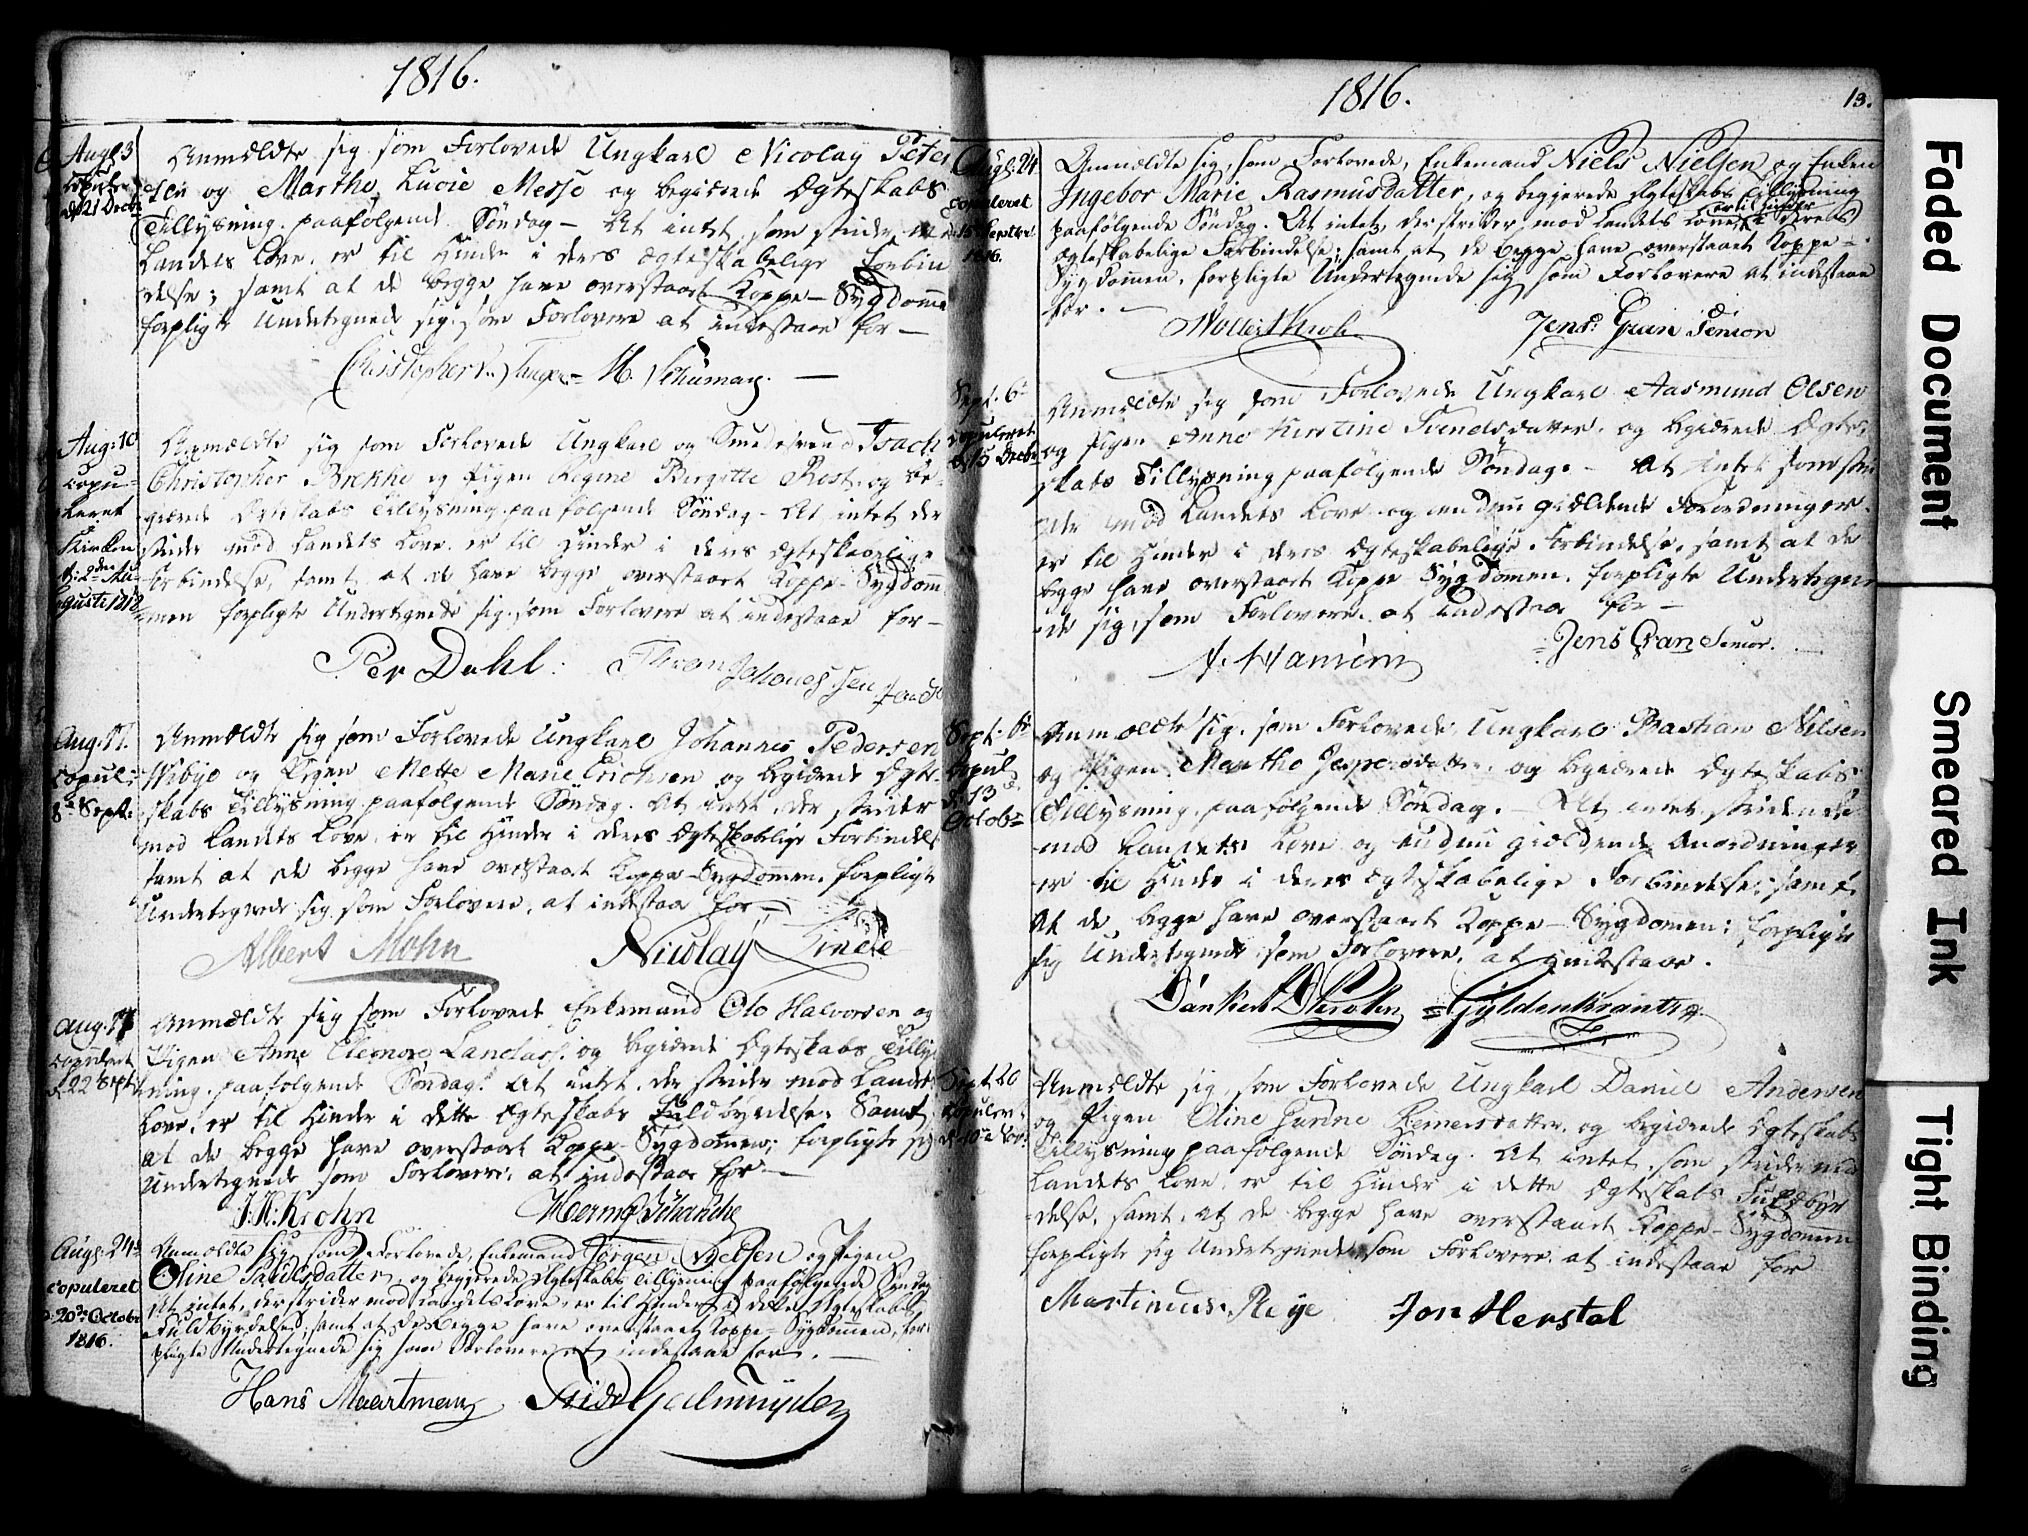 1816.
Aug. 3
Copuleret
d. 21 Decbr
Anmeldte sig som Forlovede Ungkarl Nicolay Peter
sen og Marthe Lucie Messe og begierede Egteskabs
Tillysning paafölgende Söndag – At intet, som strider mod
Landets Love, er til Hinder i deres egteskabelige Forbin
delse; samt at de begge have overstaaet Koppe-Sygdomme
forpligte Undertegnede sig som Forlovere at indestaae for –
M. Schuman.
Aug. 10
Copu-
leret
i
Kirken
d: 2den Au-
gusti 1818
Anmeldte sig som Forlovede Ungkarl og Smedesvend Isach
Christopher Brekke og Pigen Regine Birgitte Rost og be-
gierede Egteskabs Tillysning paafölgende Söndag – At intet der
strider mod Landets Love er til Hinder i deres Egteskabelige
Forbindelse, samt at de have begge overstaaet Koppe-Sygdom
men forpligte Undertegnede sig som Forlovere at indestaae for –
Per Dahl. Johannessen
Aug. 17.
Copul:
8de Septb:
Anmeldte sig som Forlovede Ungkarl Johannes Pedersen
Wibye og Pigen Mette Marie Erichsen og begierede Egte
skabs Tillysning paafölgende Söndag. At intet der strider
mod Landets Love, er til Hinder i deres Egteskablige Forbindels
samt at de begge have overstaaet Koppe-Sygdomen, forpligte
Undertegnede sig som Forlovere, at indestaa for –
Albert Mohn Nicolay Linde
Aug. 17
copuleret
d. 22 Sept:
Anmeldte sig som Forlovede Enkemand Ole Halvorsen og
Pigen Anne Eleonore Landaas og begierede Egteskabs Tillys
ning paafölgende Söndag. At intet, der strider mod Landets
Love, er til Hinder i dette Egteskabs Fuldbyrdelse; Samt
at de begge have overstaaet Koppe-Sygdommen; forpligte sig
Undertegnede som Forlovere, at indestaae for –
J. H. Krohn Herman Schanche
Aug. 24de
Copuleret
d. 20de Octobr
1816.
Anmeldte sig, som Forlovede, Enkemand Jörgen Nielsen og Pigen
Oline Paulsdatter, og begjerede Egteskabs Tillysning paafölgende Söndag
At intet, der strider mod Landets Love, er til Hinder i dette Egteskabs
Fuldbyrdelse; samt at de begge have overstaaet Koppe-Sygdommen, for-
pligte Undertegnede sig som Forlovere at indestaae for. –
Hans Maartman
1816.
13.
Aug. 24
Copuleret
15 Septbr
1816.
Anmeldte sig, som Forlovede, Enkemand Niels Nielsen og Enken
Ingebor Marie Rasmusdatter, og begjerede Egteskabs Tillysning
paafölgende Söndag. At intet, der strider mod Landets Love, er til Hinder i deres
egteskabelige Forbindelse; samt at de begge have overstaaet Koppe-
Sygdommen, forpligte Undertegnede sig som Forlovere at indestaae
for. –
Jens Gran Senior
Sept. 6te
Copuleret
d. 15 Decbr
Anmeldte sig som Forlovede Ungkarl Aasmund Olsen
og Pigen Anne Kirstine Svendsdatter, og begierede Egte-
skabs Tillysning paafölgende Söndag. – At intet som stri
der mod Landets Love og endnu gieldende Forordninger
er til Hinder i deres Egteskabelige Forbindelse, samt at de
begge have overstaaet Koppe Sygdommen, forpligte Undertegne
de sig, som Forlovere, at indestaae for –
Jens Gran Senior.
Sept. 6te
Copul
d. 13de
Octobr
Anmeldte sig, som Forlovede, Ungkarl Bastian Nilsen
og Pigen Marthe Jespersdatter, og begierede Egteskabs
Tillysning paafölgende Söndag. – At intet stridende
mod Landets Love og endnu gieldende Anordninger
er til Hinder i deres Egteskabelige Forbindelse; samt
At de begge have overstaaet Koppe-Sygdommen; forpligte
sig Undertegnede, som Forlovere, at indestaae.
Danckert D Krohn Gyldenkrantz
Sept. 20
Copuler:
d. 10de Nov:
Anmeldte sig som Forlovede Ungkarl Daniel Andersen
og Pigen Oline Gurine Reinersdatter, og begierede Egteskabs
Tillysning paafölgende Söndag. At intet, som strider mod
Landets Love, er til Hinder i dette Egteskabs Fuldbyr
delse, samt, at de begge have overstaaet Koppe-Sygdommen
forpligte sig Undertegnede som Forlovere, at indestaae for
Martinus Reye Jon Herstal
Faded Document
Smeared Ink
Tight Binding